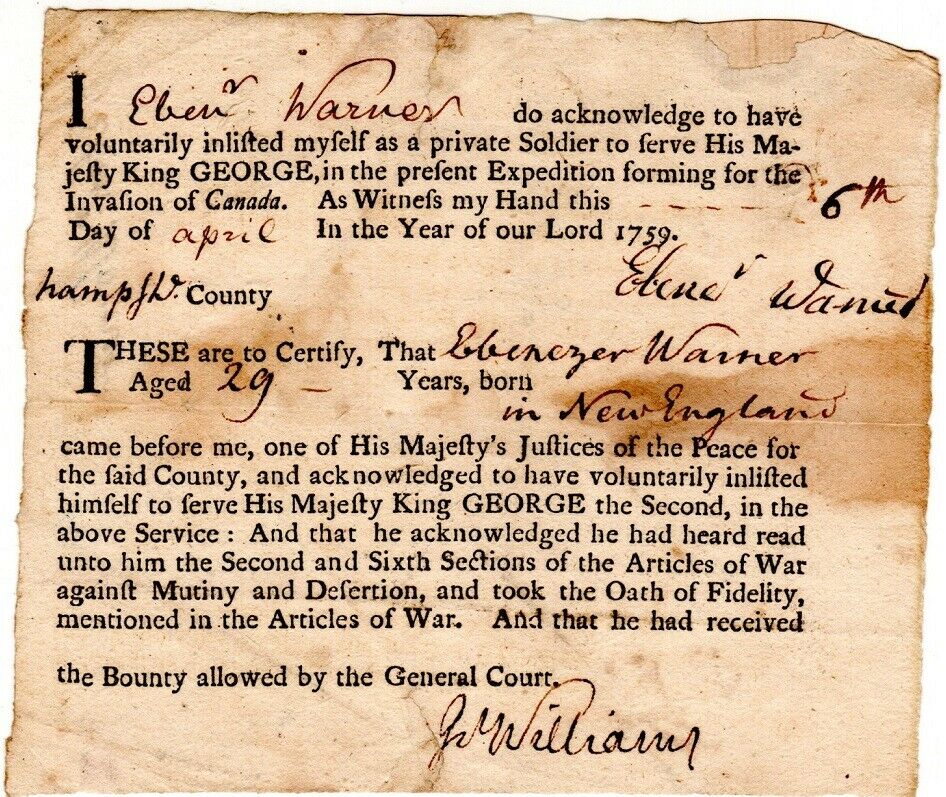 I Ebenʳ Warner do acknowledge to have
voluntarily inliſted myſelf as a private Soldier to ſerve His Ma-
jeſty King GEORGE, in the preſent Expedition forming for the
Invaſion of Canada. As Witneſs my Hand this - - - - - 6th
Day of april In the Year of our Lord 1759.
Ebeneʳ Warner
County
THESE are to Certify, That Ebenezer Warner
Aged 29 – Years, born
in New England
came before me, one of His Majeſty's Juſtices of the Peace for
the ſaid County, and acknowledged to have voluntarily inliſted
himſelf to ſerve His Majeſty King GEORGE the Second, in the
above Service : And that he acknowledged he had heard read
unto him the Second and Sixth Sections of the Articles of War
againſt Mutiny and Deſertion, and took the Oath of Fidelity,
mentioned in the Articles of War. And that he had received
the Bounty allowed by the General Court.
Williams